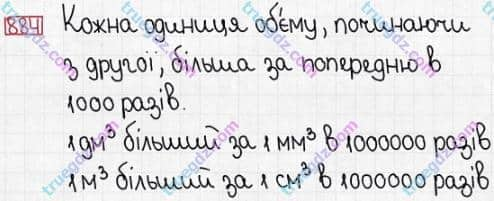 884 Кожна одиниця об'єму, починаючи
з другої, більша за попередню в
1000 разів.
1 дм³ більший за 1 мм³ в 1000000 разів
1 м³ більший за 1 см³ в 1000000 разів